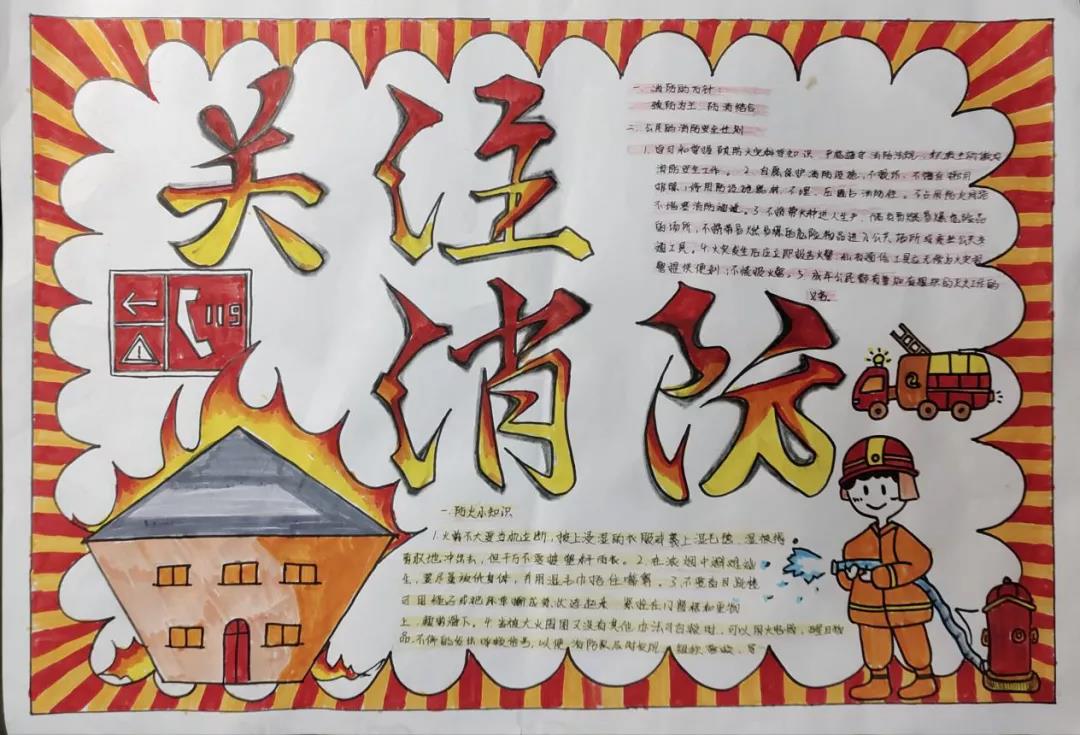 关注
消防
119
一、消防的方针：
预防为主，防消结合
二、公民的消防安全计划
1.学习和掌握预防火灾的知识 严格遵守消防法规，
消防安全工作。2.自觉保护消防设施，不损坏、不擅自挪用
拆除、停用消防设施器材，不埋、压圈占消防栓。不占用防火间距
不堵塞消防通道。3.不携带火种进入生产、储存易燃易爆危险品
的场所，不携带易燃易爆的危险物品进入公共场所或乘坐公共交
通工具。4.火灾发生后应立即报告火警
警提供便利；不谎报火警。5.成年公民都有参加有组织的灭火工作的
义务。
一.防火小知识
1.火势不大要当机立断，披上浸湿的衣服或裹上湿毛毯、湿被褥
勇敢地冲出去，但千万不要披塑料雨衣。2.在浓烟中避难逃
生，要尽量放低身体，并用湿毛巾捂住嘴鼻。3.不要盲目跳楼
可用绳子或把床单撕成条状连起来 紧拴在门窗框和重物
上，顺势滑下。4.当被大火围困又没有其他办法可自救时，可以用手电筒、醒目物
品不停的发出呼救信号，以便消防队及时发现，组织营救。